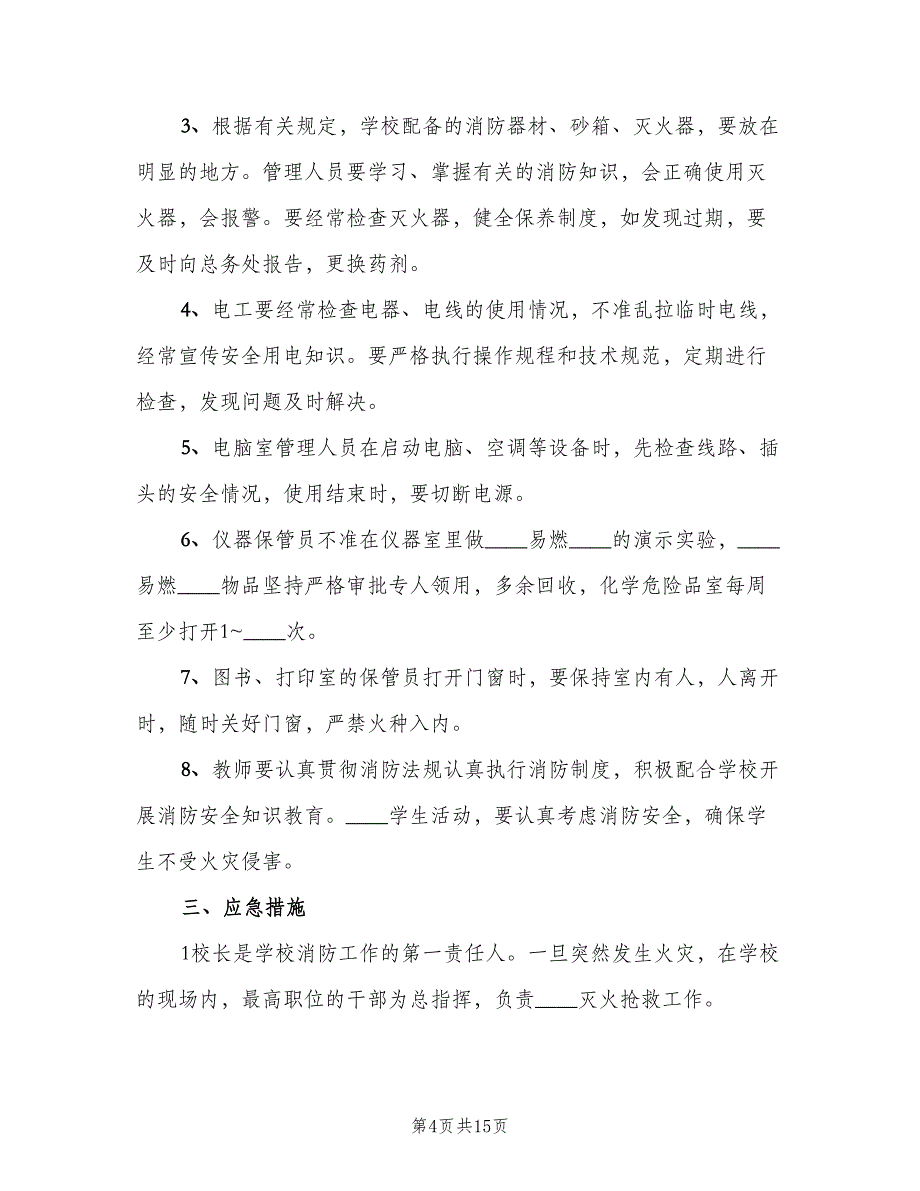 3、根据有关规定，学校配备的消防器材、砂箱、灭火器，要放在
明显的地方。管理人员要学习、掌握有关的消防知识，会正确使用灭
火器，会报警。要经常检查灭火器，健全保养制度，如发现过期，要
及时向总务处报告，更换药剂。
4、电工要经常检查电器、电线的使用情况，不准乱拉临时电线，
经常宣传安全用电知识。要严格执行操作规程和技术规范，定期进行
检查，发现问题及时解决。
5、电脑室管理人员在启动电脑、空调等设备时，先检查线路、插
头的安全情况，使用结束时，要切断电源。
6、仪器保管员不准在仪器室里做____易燃____的演示实验，____
易燃____物品坚持严格审批专人领用，多余回收，化学危险品室每周
至少打开1~____次。
7、图书、打印室的保管员打开门窗时，要保持室内有人，人离开
时，随时关好门窗，严禁火种入内。
8、教师要认真贯彻消防法规认真执行消防制度，积极配合学校开
展消防安全知识教育。____学生活动，要认真考虑消防安全，确保学
生不受火灾侵害。
三、应急措施
1校长是学校消防工作的第一责任人。一旦突然发生火灾，在学校
的现场内，最高职位的干部为总指挥，负责____灭火抢救工作。
第4页共15页